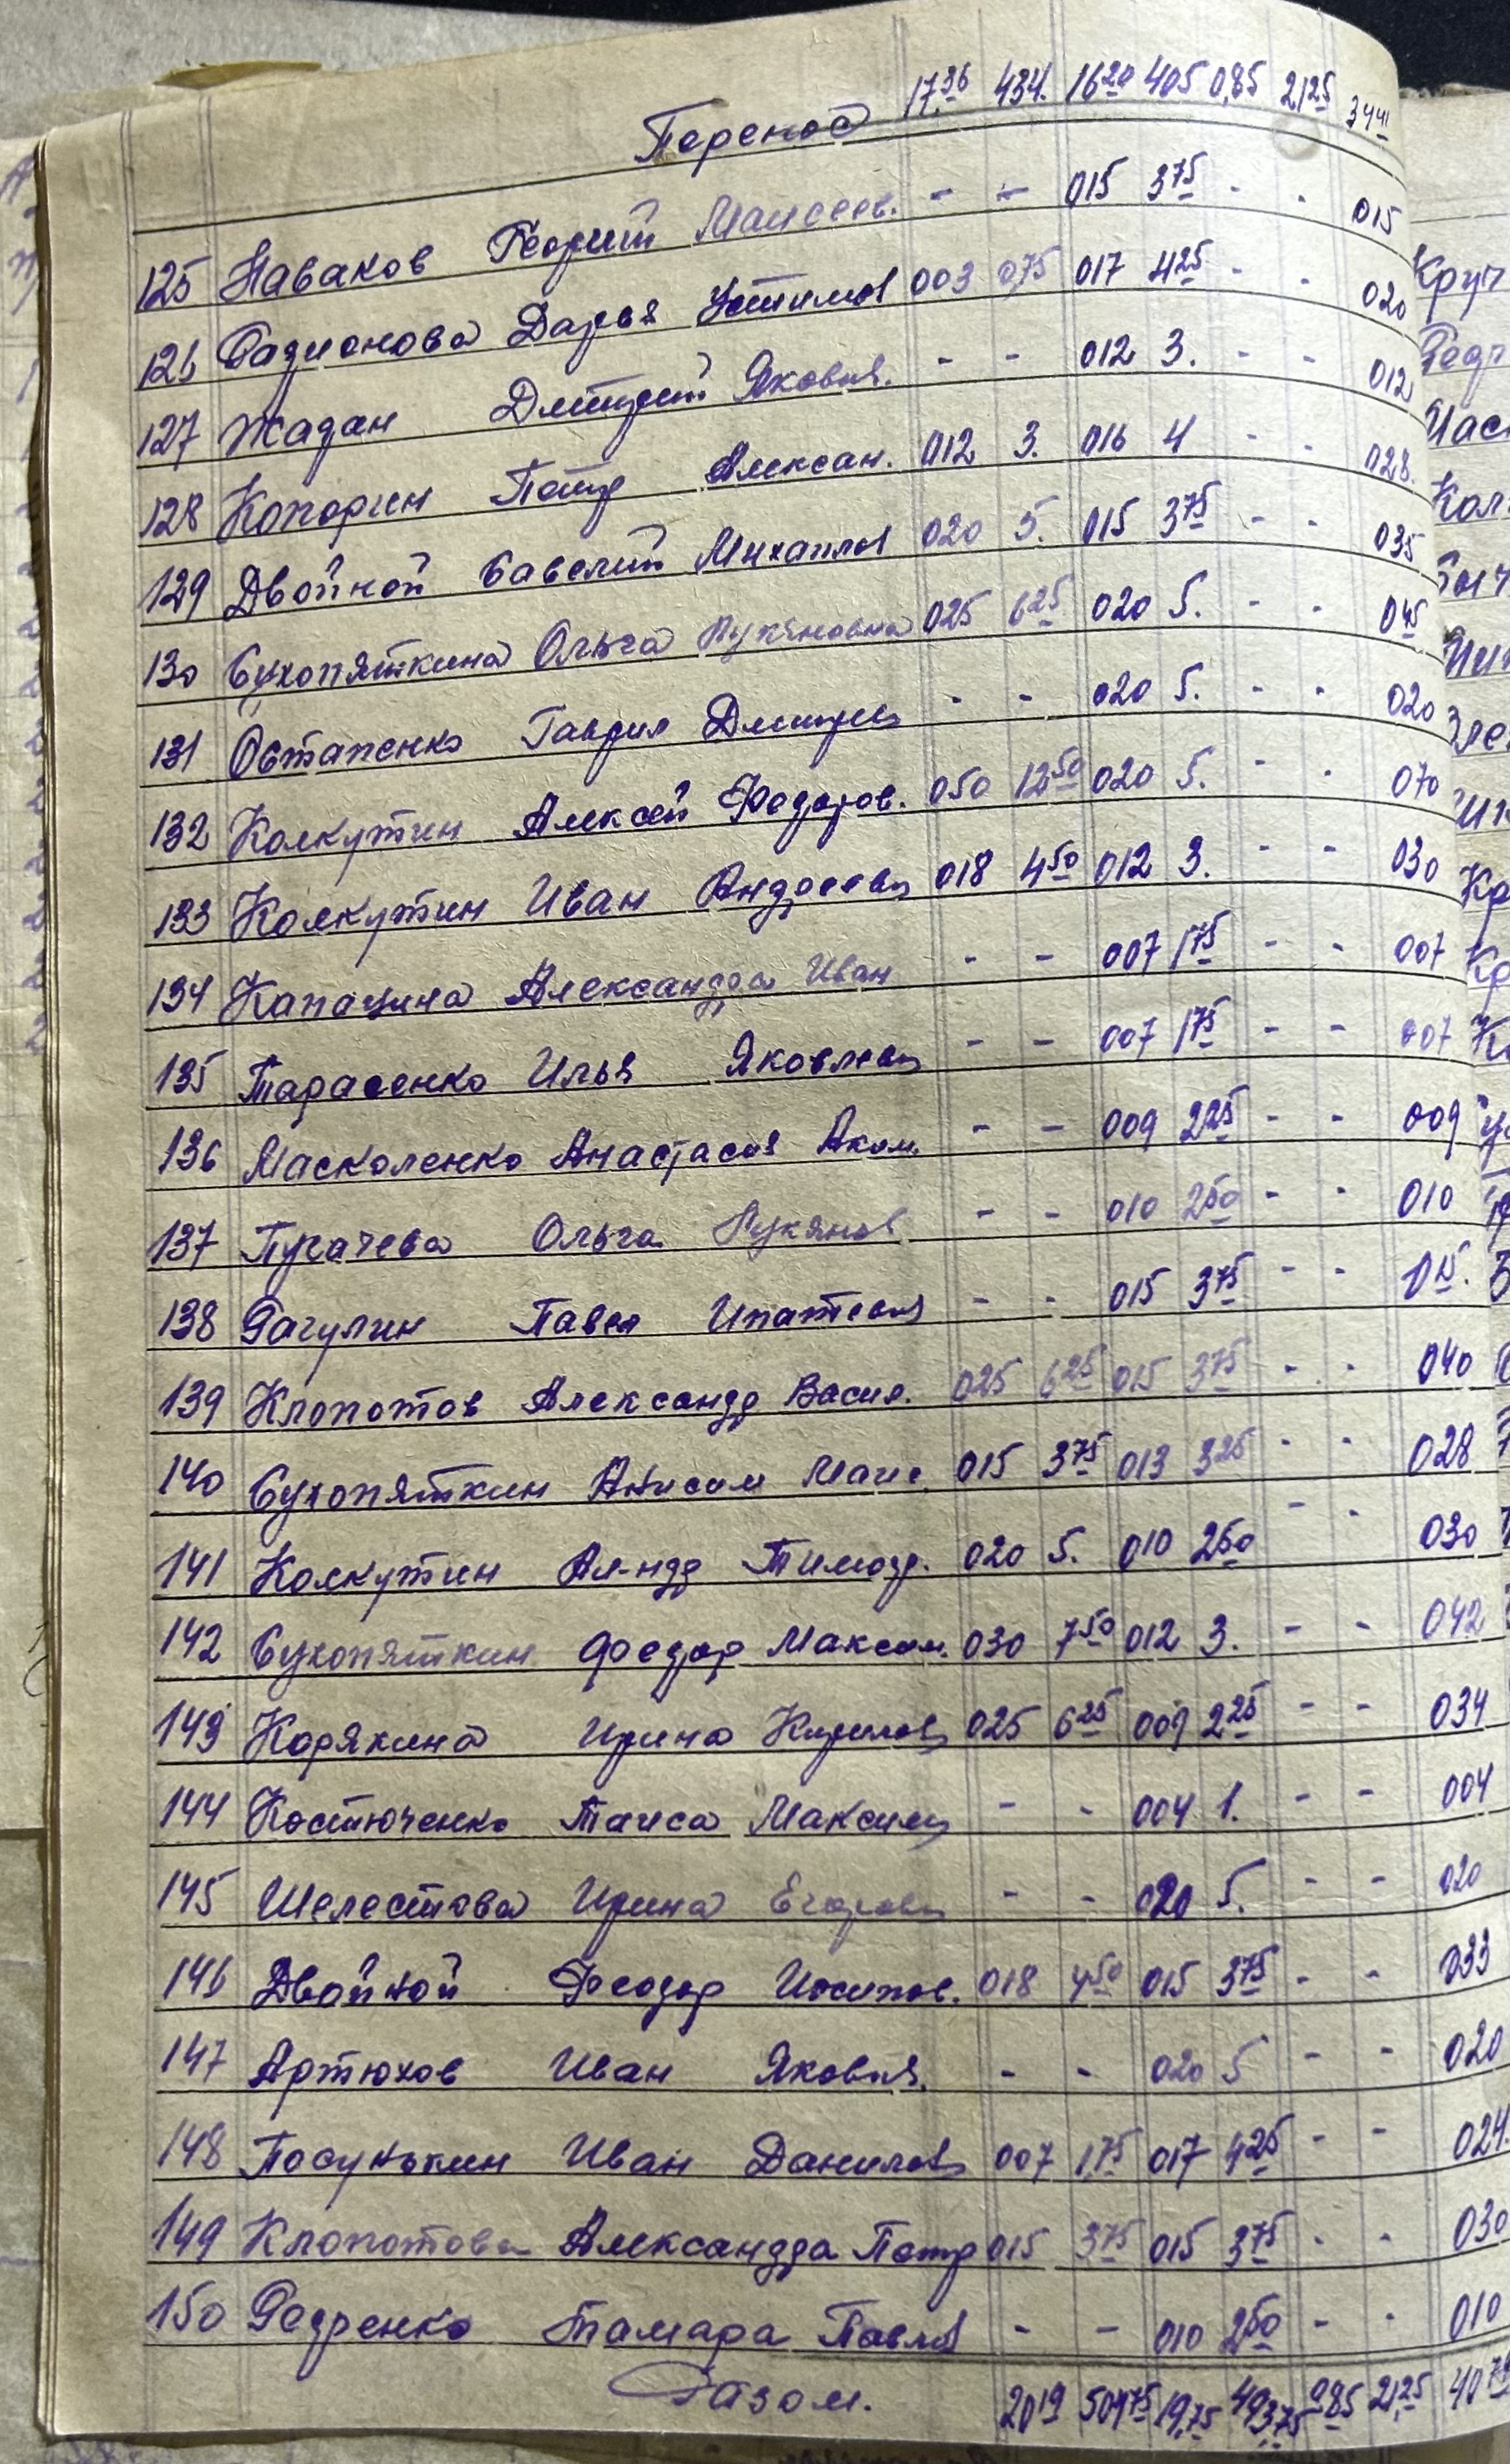 Перенос 17,36 434. 16 20 405 0,85 21 25 34 41
125 Наваков Георгий Маисеев. - - 015 3 75 - - 015
126 Радионова Дарья Устимов 003 0,75 017 4 25 - - 020
127 Жадан Дмитрий Яковл. - - 012 3. - - 012
128 Копорин Петр Алексан. 012 3. 016 4 - - 028.
129 Двойной Савелий Михаилов 020 5. 015 3 75 - - 035
130 Сухопяткина Ольга Лукяновна 025 6 25 020 5. - - 045
131 Остапенко Гаврил Дмитриев - - 020 5. - - 020
132 Колкутин Алексей Федоров. 050 12 50 020 5. - - 070
133 Колкутин Иван Андреевич 018 4 50 012 3. - - 030
134 Капацина Александра Иван - - 007 1 75 - - 007
135 Тарасенко Илья Яковлевич - - 007 1 75 - - 007
136 Масколенко Анастасия Аким. - - 009 2 25 - - 009
137 Пугачева Ольга Лукянов - - 010 2 50 - - 010
138 Рагулин Павел Ипатевич - - 015 3 75 - - 015.
139 Клопотов Александр Васил. 025 6 25 015 3 75 - - 040
140 Сухопяткин Анисим Маис 015 3 75 013 3 25 - - 028
141 Колкутин Ал-ндр Тимофе. 020 5. 010 2 50 - - 030
142 Сухопяткин Федор Максим. 030 7 50 012 3. - - 042
143 Корякина Ирина Кирилов 025 6 25 009 2 25 - - 034
144 Костюченко Таиса Максим - - 004 1. - - 004
145 Шелестова Ирина Егоров - - 020 5. - - 020
146 Двойной Феодор Иосипов. 018 4 50 015 3 75 - - 033
147 Артюхов Иван Яковл. - - 020 5 - - 020
148 Посунькин Иван Данилов 007 1,75 017 4 25 - - 024.
149 Клопотова Александра Петр 015 3 75 015 3 75 - - 030
150 Редренко Тамара Павлов - - 010 2 50 - - 010
Разом. 20 19 504 75 19,75 493,75 0 85 21,25 40 79